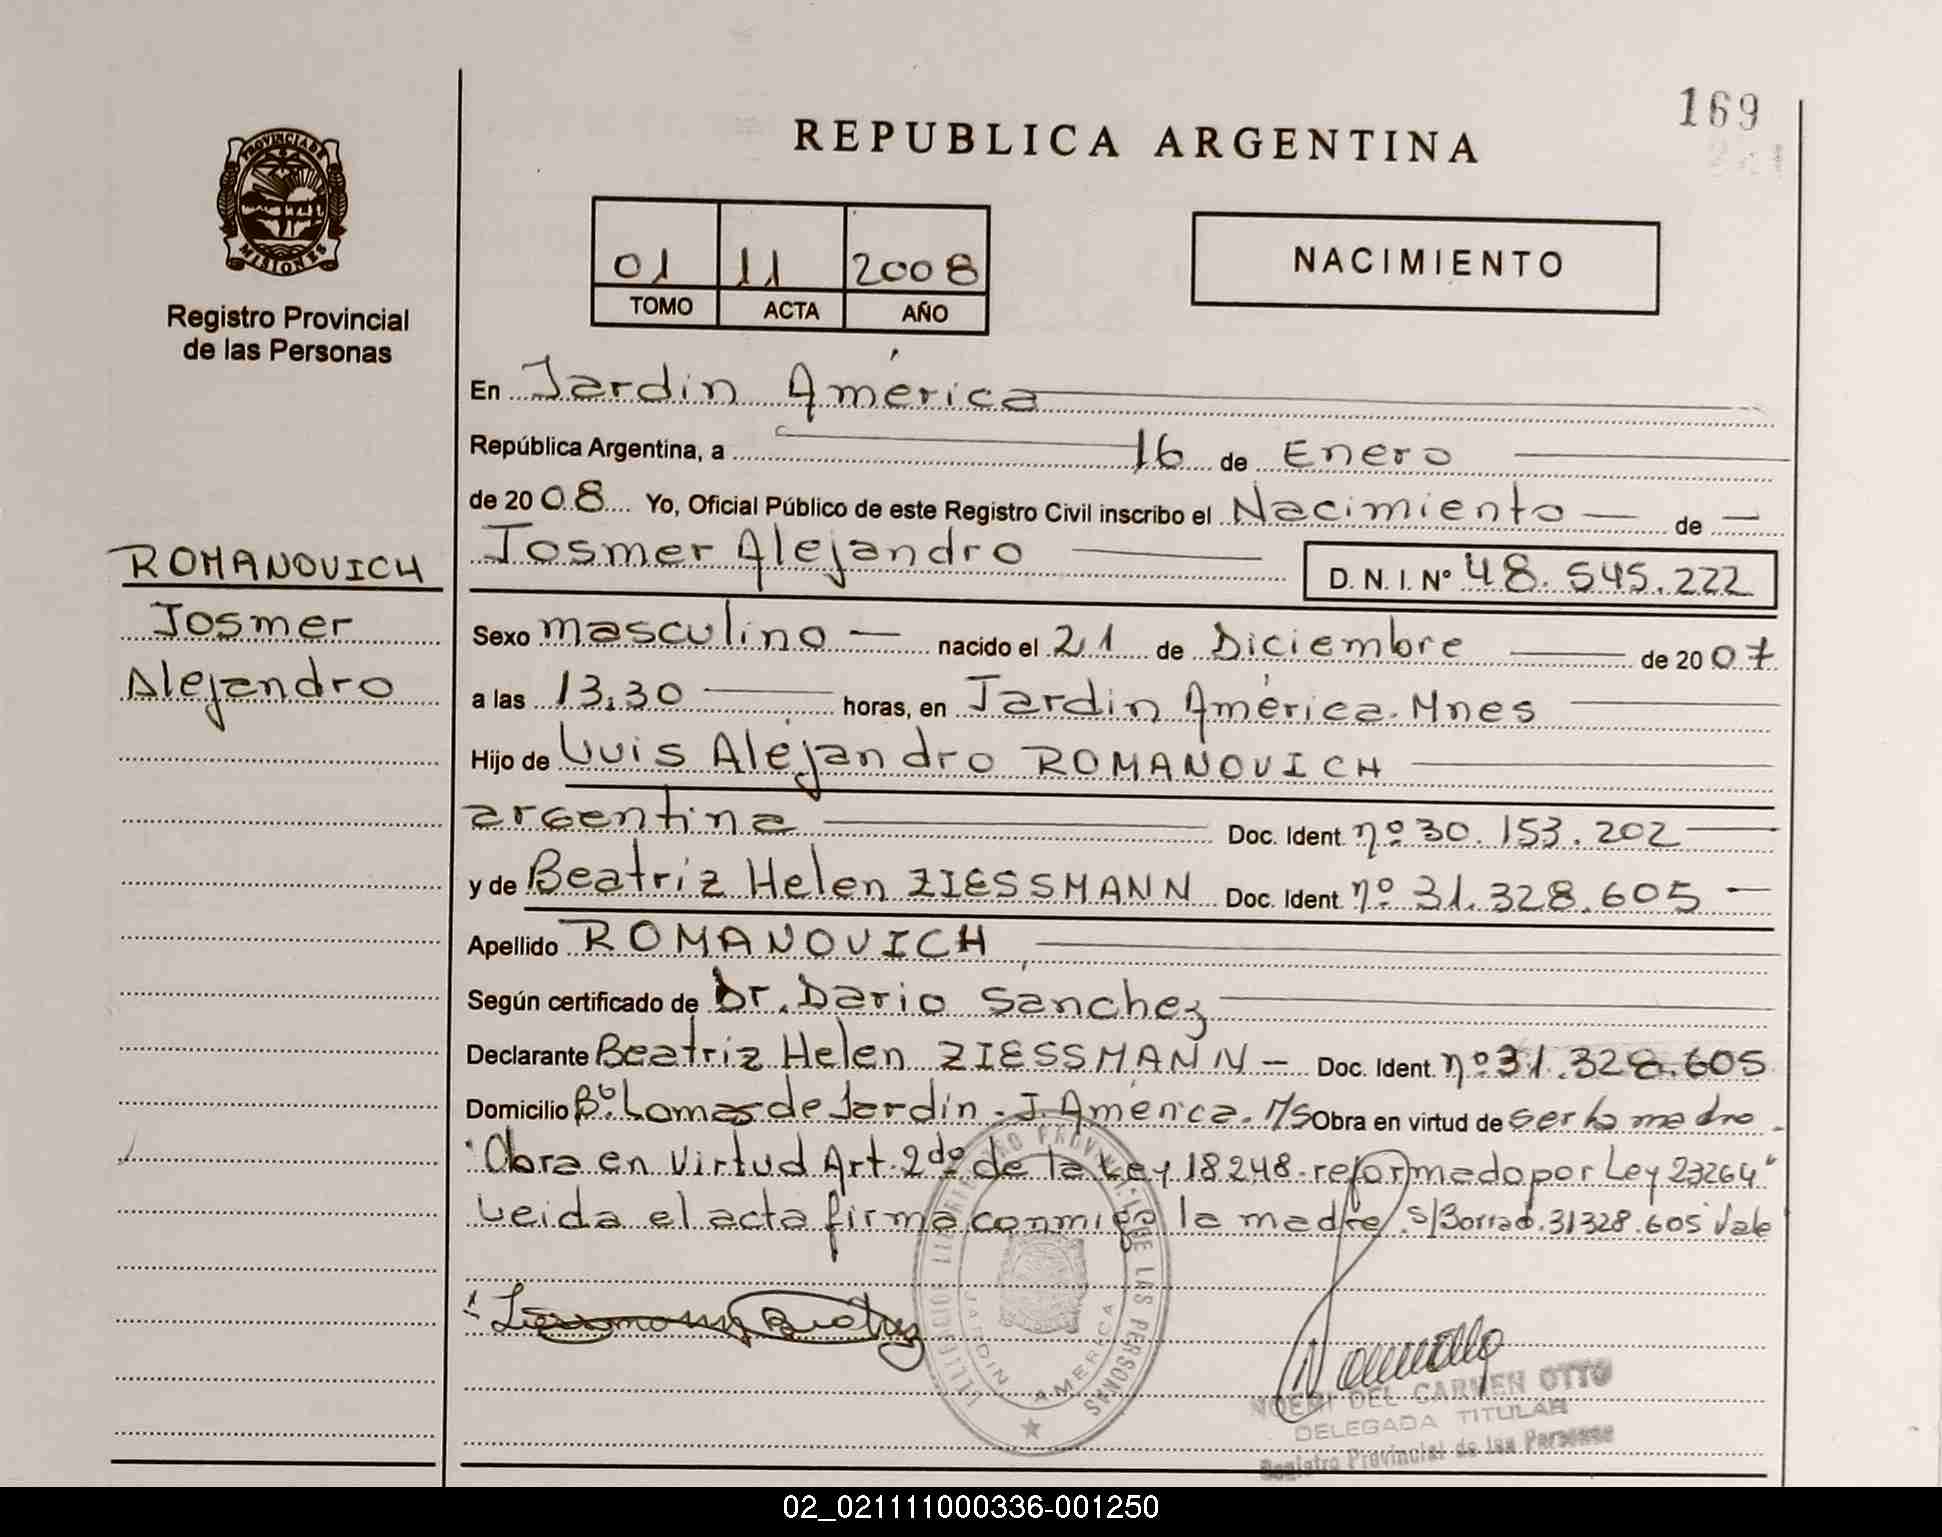 169
REPUBLICA ARGENTINA
PROVINCIA DE
MISIONES
Registro Provincial
de las Personas
01 11 2008
TOMO ACTA AÑO
NACIMIENTO
En Jardin América
República Argentina, a 16 de Enero
de 2008 Yo, Oficial Público de este Registro Civil inscribo el Nacimiento de
Josmer Alejandro D. N. I. Nº 48.545.222
ROMANOVICH
Josmer
Alejandro
Sexo masculino nacido el 21 de Diciembre de 2007
a las 13,30 horas, en Jardin América. Mnes
Hijo de Luis Alejandro ROMANOVICH
argentina Doc. Ident. nº 30.153.202
y de Beatriz Helen ZIESSMANN Doc. Ident. nº 31.328.605
Apellido ROMANOVICH
Según certificado de Dr. Dario Sanchez
Declarante Beatriz Helen ZIESSMANN Doc. Ident. nº 31.328.605
Domicilio Bº Lomas de Jardin. J. América. M/S Obra en virtud de ser la madre.
"Obra en Virtud Art. 2do de la Ley 18248 reformado por Ley 23264"
Leida el acta firma conmigo la madre. S/Borrad. 31328.605 Vale
DE LAS PERSONAS
JARDIN AMERICA
NOEMI DEL CARMEN OTTO
DELEGADA TITULAR
Registro Provincial de las Personas
02_021111000336-001250